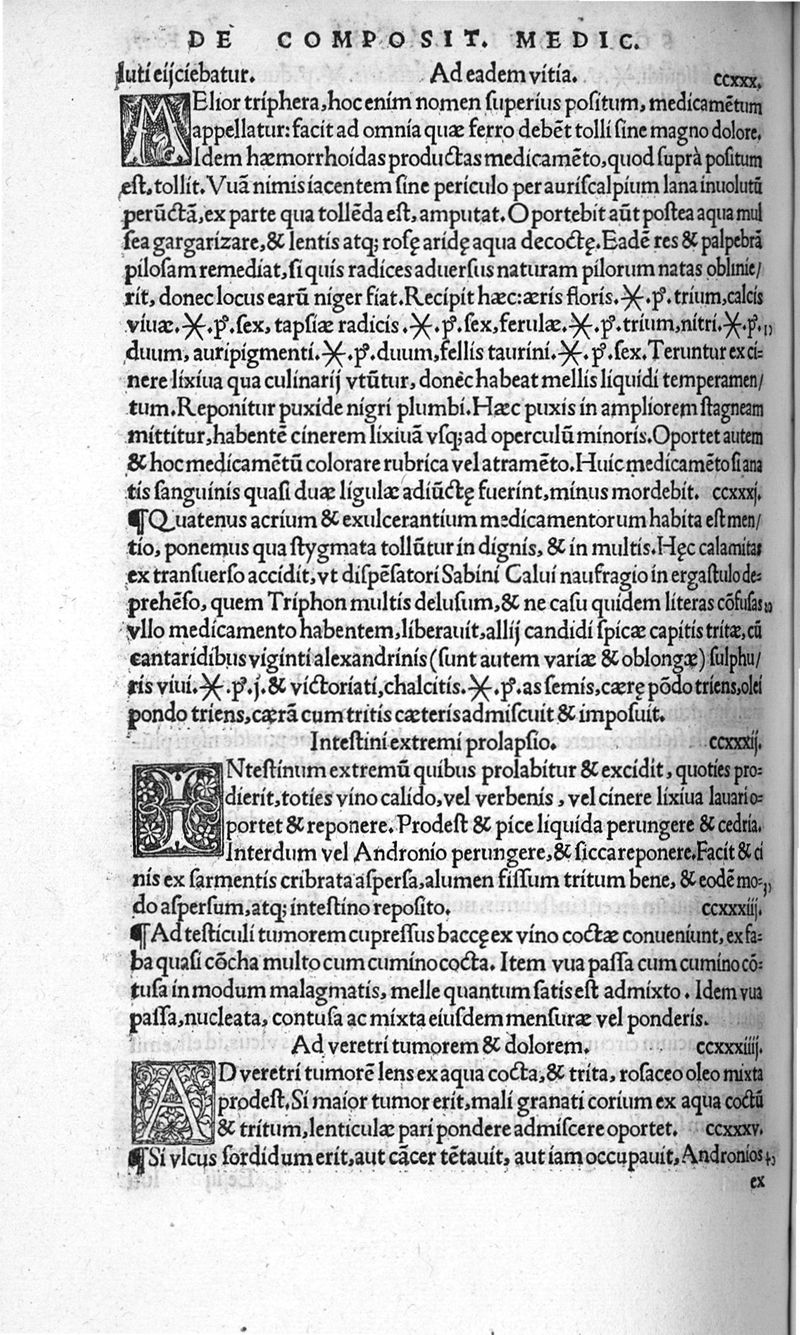 DE COMPOSIT. MEDIC.
luti eijciebatur. Ad eadem vitia. ccxxx.
MElior triphera, hoc enim nomen superius positum, medicamētum
appellatur: facit ad omnia quæ ferro debēt tolli sine magno dolore.
Idem hæmorrhoidas productas medicamēto, quod suprà positum
est, tollit. Vuā nimis iacentem sine periculo per auriscalpium lana inuolutū
perūctā, ex parte qua tollēda est, amputat. Oportebit aūt postea aqua mul
sea gargarizare, & lentis atq; rosę aridę aqua decoctę. Eadē res & palpebrā
pilosam remediat, si quis radices aduersus naturam pilorum natas oblinie/
rit, donec locus earū niger fiat. Recipit hæc: æris floris. X. p̊. trium, calcis
viuæ. X. p̊. sex, tapsiæ radicis. X. p̊. sex, ferulæ. X. p̊. trium, nitri. X. p̊.
duum, auripigmenti. X. p̊. duum, fellis taurini. X. p̊. sex. Teruntur ex ci=
nere lixiua qua culinarij vtūtur, donèc habeat mellis liquidi temperamen/
tum. Reponitur puxide nigri plumbi. Hæc puxis in ampliorem stagneam
mittitur, habentē cinerem lixiuā vsq; ad operculū minoris. Oportet autem
& hoc medicamētū colorare rubrica vel atramēto. Huic medicamēto si ana
tis sanguinis quasi duæ ligulæ adiūctę fuerint, minus mordebit. ccxxxj.
¶Quatenus acrium & exulcerantium medicamentorum habita est men/
tio, ponemus qua stygmata tollūtur in dignis, & in multis. Hęc calamitas
ex transuerso accidit, vt dispēsatori Sabini Calui naufragio in ergastulo de=
prehēso, quem Triphon multis delusum, & ne casu quidem literas cōfusas
vllo medicamento habentem, liberauit, allij candidi spicæ capitis tritæ, cū
cantaridibus viginti alexandrinis (sunt autem variæ & oblongæ) sulphu/
ris viui. X. p̊. j. & victoriati, chalcitis. X. p̊. as semis, cærę pōdo triens, olei
pondo triens, cærā cum tritis cæteris admiscuit & imposuit.
Intestini extremi prolapsio. ccxxxij.
INtestinum extremū quibus prolabitur & excidit, quoties pro=
dierit, toties vino calido, vel verbenis, vel cinere lixiua lauari o=
portet & reponere. Prodest & pice liquida perungere & cedria.
Interdum vel Andronio perungere, & sicca reponere. Facit & ci
nis ex sarmentis cribrata aspersa, alumen fissum tritum bene, & eodē mo=
do aspersum, atq; intestino reposito. ccxxxiij.
¶Ad testiculi tumorem cupressus baccę ex vino coctæ conueniunt, ex fa=
ba quasi cōcha multo cum cumino cocta. Item vua passa cum cumino cō=
tusa in modum malagmatis, melle quantum satis est admixto. Idem vua
passa, nucleata, contusa ac mixta eiusdem mensuræ vel ponderis.
Ad veretri tumorem & dolorem. ccxxxiiij.
AD veretri tumorē lens ex aqua cocta, & trita, rosaceo oleo mixta
prodest. Si maior tumor erit, mali granati corium ex aqua coctū
& tritum, lenticulæ pari pondere admiscere oportet. ccxxxv.
¶Si vlcus sordidum erit, aut cācer tētauit, aut iam occupauit, Andronios
ex